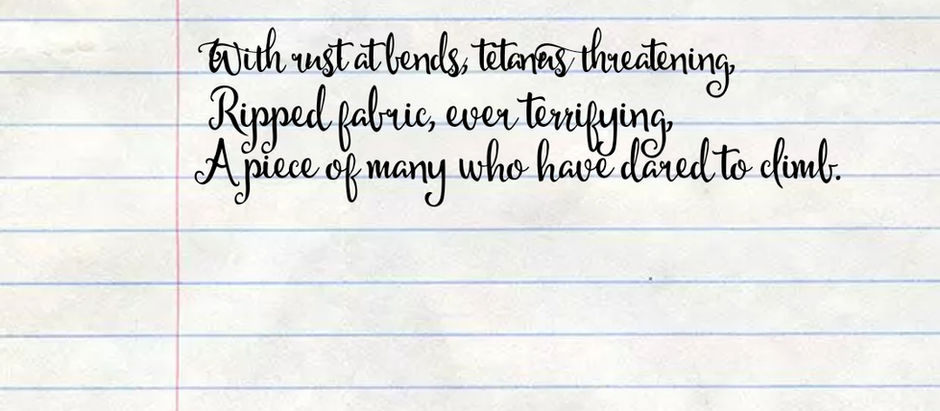 With rust at bends, tetanus threatening,
Ripped fabric, ever terrifying,
A piece of many who have dared to climb.